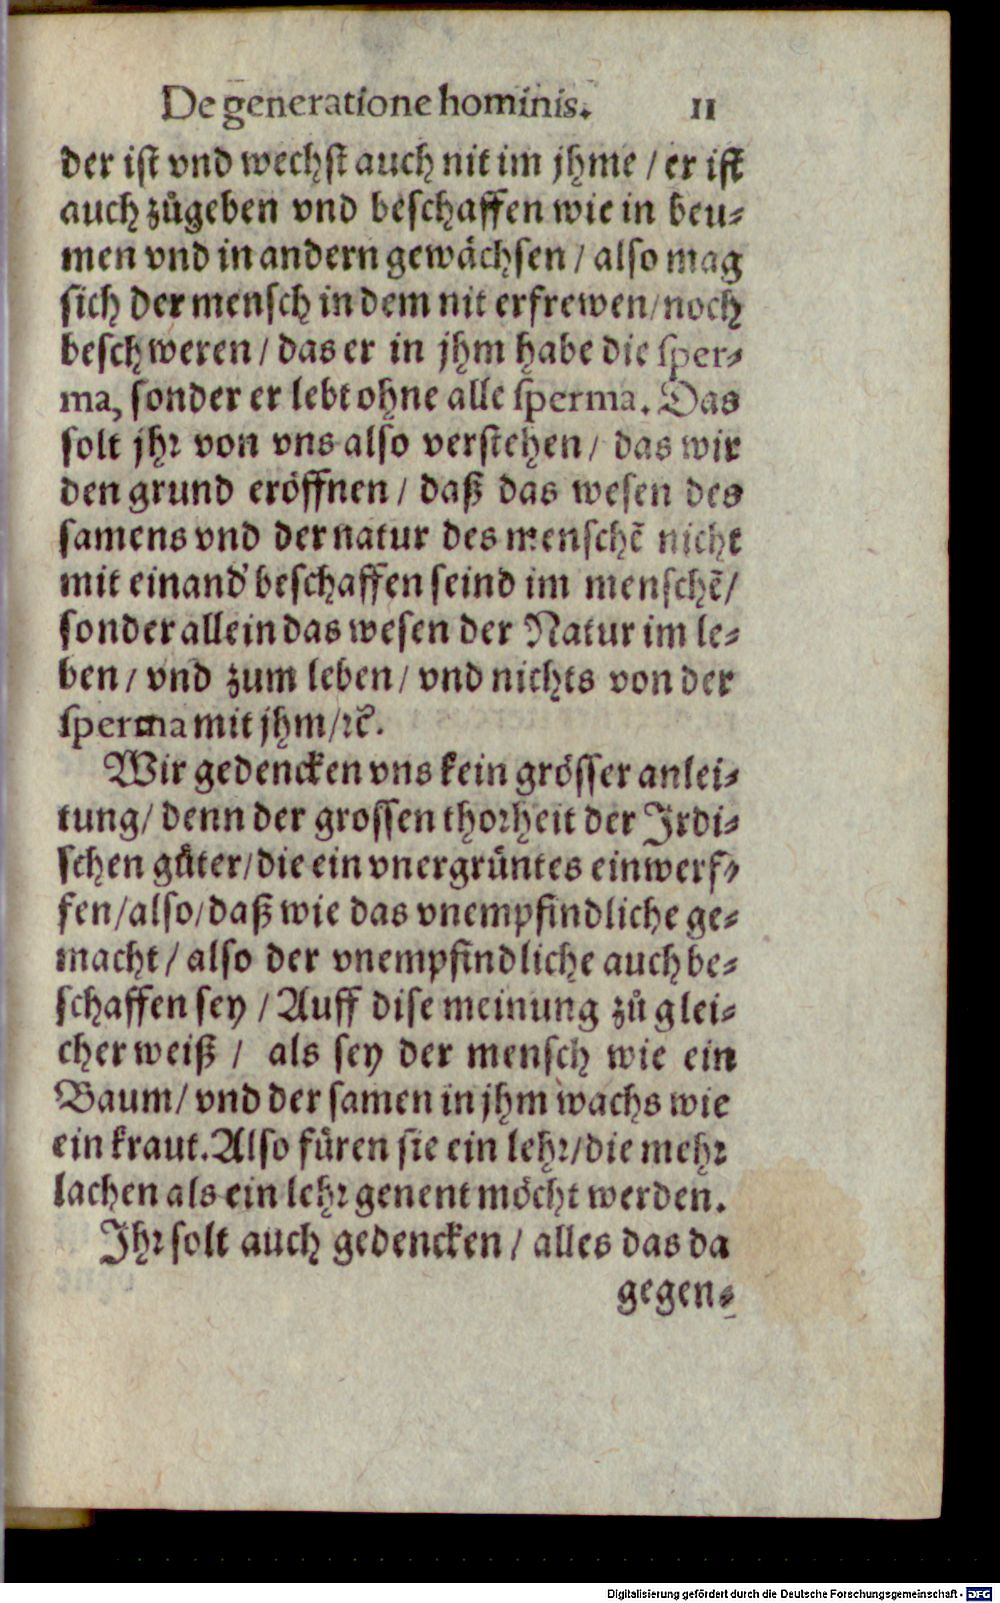 De generatione hominis. 11
der ist vnd wechst auch nit im jhme / er ist
auch zůgeben vnd beschaffen wie in beu-
men vnd in andern gewächsen / also mag
sich der mensch in dem nit erfrewen/noch
beschweren / das er in jhm habe die sper-
ma, sonder er lebt ohne alle sperma. Das
solt jhr von vns also verstehen / das wir
den grund eröffnen / daß das wesen des
samens vnd der natur des menschẽ nicht
mit einand' beschaffen seind im menschẽ/
sonder allein das wesen der Natur im le-
ben / vnd zum leben / vnd nichts von der
sperma mit jhm/ꝛc̃.
Wir gedencken vns kein grösser anlei-
tung/ denn der grossen thorheit der Irdi-
schen gůter/die ein vnergrüntes einwerf-
fen/also/daß wie das vnempfindliche ge-
macht / also der vnempfindliche auch be-
schaffen sey / Auff dise meinung zů glei-
cher weiß / als sey der mensch wie ein
Baum/ vnd der samen in jhm wachs wie
ein kraut. Also füren sie ein lehr/die mehr
lachen als ein lehr genent möcht werden.
Ihr solt auch gedencken / alles das da
gegen-
Digitalisierung gefördert durch die Deutsche Forschungsgemeinschaft - DFG